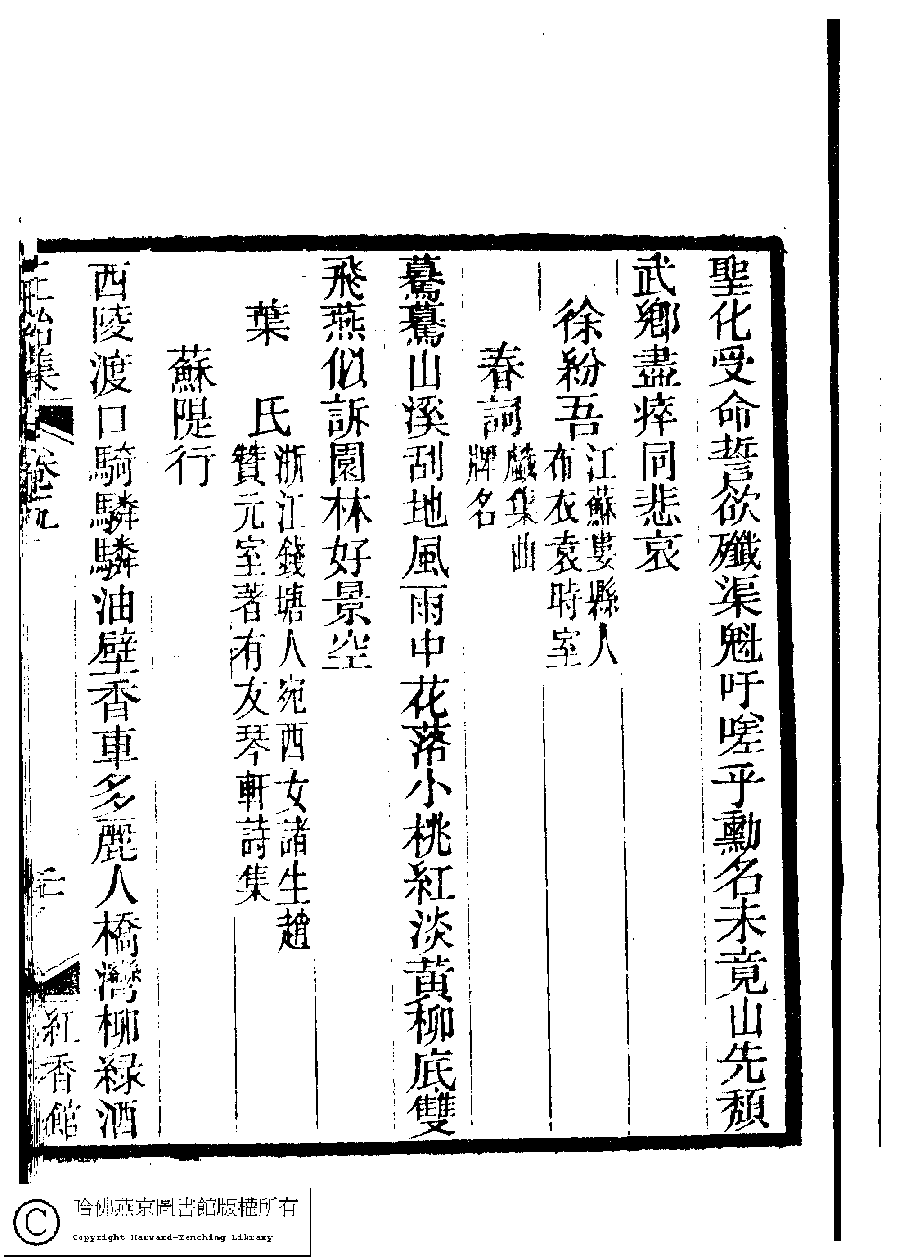 聖化受命誓欲殲渠魁吁嗟乎勳名未竟山先頹
武鄉盡瘁同悲哀
徐紛吾江蘇婁縣人
布衣袁時室
春詞戲集曲
牌名
驀驀山溪刮地風雨中花落小桃紅淡黃柳底雙
飛燕似訴園林好景空
葉氏浙江錢塘人宛西女諸生趙
贊元室著有友琴軒詩集
蘇隄行
西陵渡口騎驎驎油壁香車多麗人橋灣柳綠酒
集 卷九
紅香館
哈佛燕京圖書館版權所有
Copyright Harvard-Yenching Library